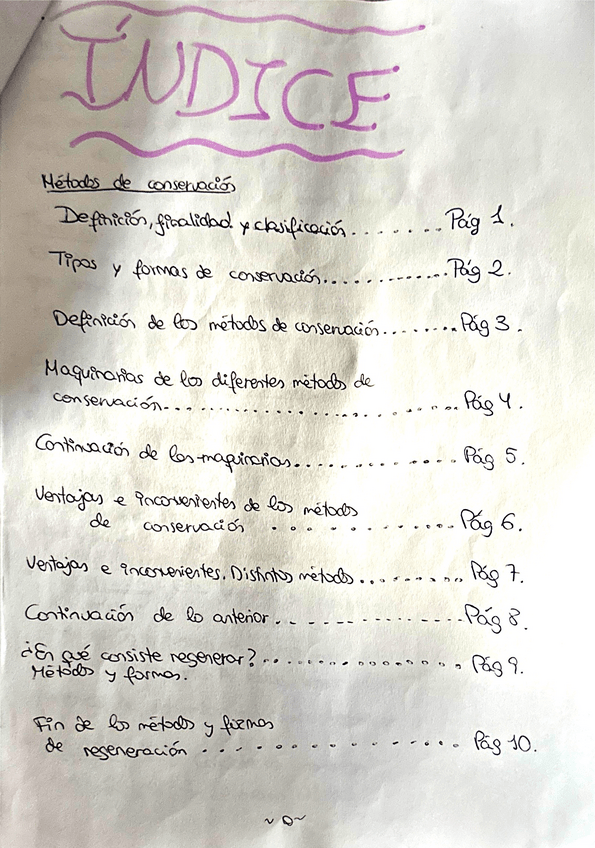 ÍNDICE
Métodos de conservación
Definición, finalidad y clasificación....... Pág 1.
Tipos y formas de conservación............. Pág 2.
Definición de los métodos de conservación........ Pág 3.
Maquinarias de los diferentes métodos de
conservación........................ Pág 4.
Continuación de las maquinarias................ Pág 5.
Ventajas e inconvenientes de los métodos
de conservación .................. Pág 6.
Ventajas e inconvenientes. Distintos métodos........... Pág 7.
Continuación de lo anterior.. - - - - - - ....... Pág 8.
¿En qué consiste regenerar?.................. Pág 9.
Métodos y formas.
Fin de los métodos y formas
de regeneración .................. Pág 10.
~ 0 ~